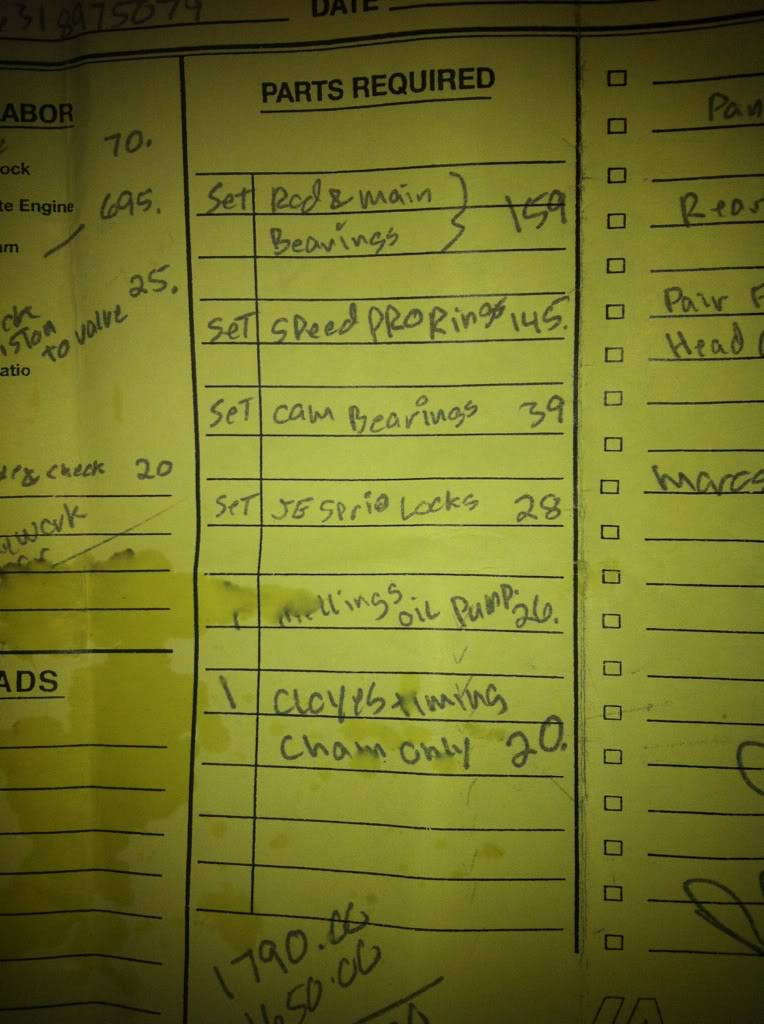 6318975079
DATE
LABOR
70.
ock
te Engine 695.
am
25.
iston
to valve
atio
& check 20
work
ADS
PARTS REQUIRED
Set Rod & main
Bearings 159
SeT SPeed PRO Rings 145.
SeT cam Bearings 39
SeT JE Sprio Locks 28
1 mellings oil Pump. 26.
1 Cloyes timing
Chain only 20.
1790.00
650.00
Pan
Rear
Pair F
Head